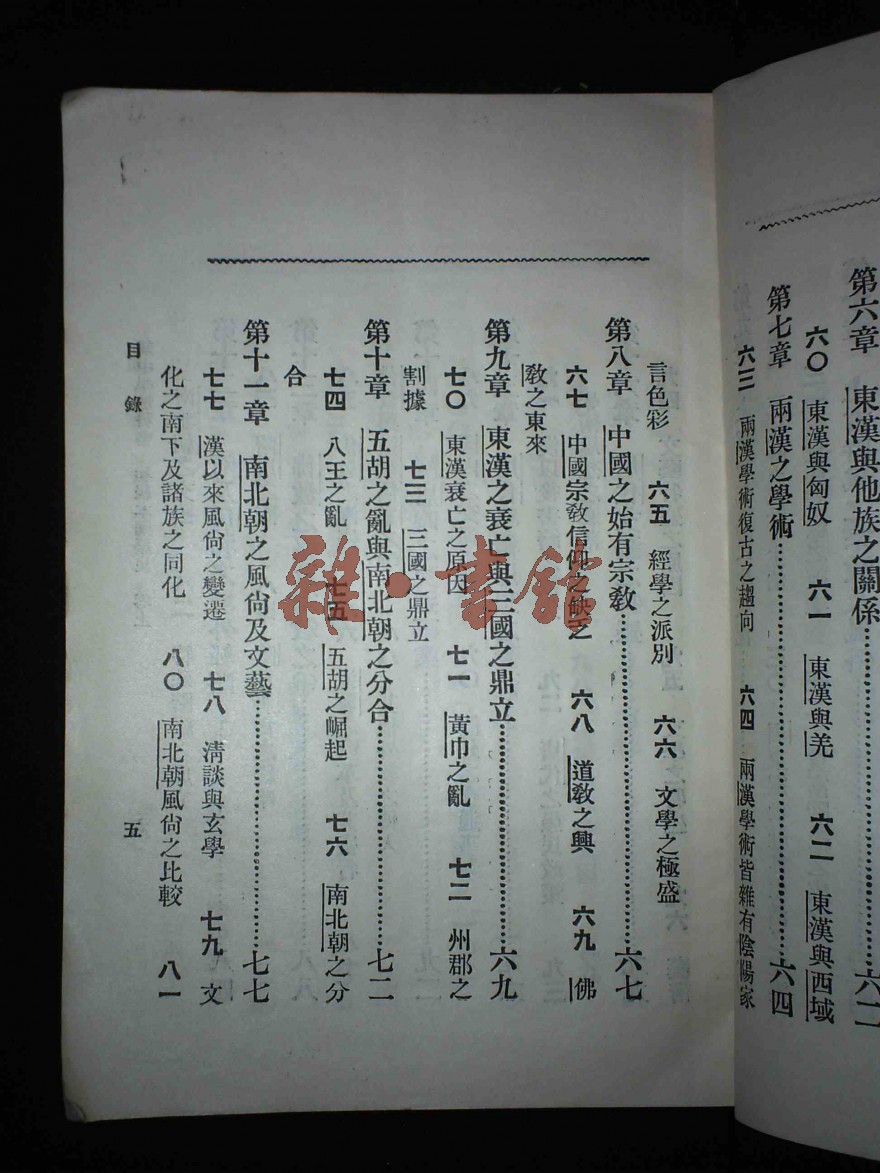 第六章　東漢與他族之關係……六二
六〇　東漢與匈奴　六一　東漢與羌　六二　東漢與西域
第七章　兩漢之學術……六四
六三　兩漢學術復古之趨向　六四　兩漢學術皆雜有陰陽家
言色彩　六五　經學之派別　六六　文學之極盛
第八章　中國之始有宗教……六七
六七　中國宗教信仰之缺乏　六八　道教之興　六九　佛
教之東來
第九章　東漢之衰亡與三國之鼎立……六九
七〇　東漢衰亡之原因　七一　黃巾之亂　七二　州郡之
割據　七三　三國之鼎立
第十章　五胡之亂與南北朝之分合……七二
七四　八王之亂　七五　五胡之崛起　七六　南北朝之分
合
第十一章　南北朝之風尚及文藝……七七
七七　漢以來風尚之變遷　七八　清談與玄學　七九　文
化之南下及諸族之同化　八〇　南北朝風尚之比較　八一
目錄
五
雜·書館